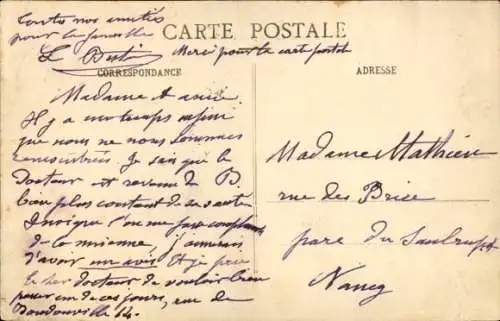 Toutes nos amitiés
pour la famille
Merci pour la carte postale
CARTE POSTALE
CORRESPONDANCE
ADRESSE
Madame et amie
Il y a un temps infini
que nous ne nous sommes
rencontrées. Je sais que le
Docteur est revenu de B
bien plus content de sa santé
l'on me fasse compliment
de la mienne, j'aimerais
d'avoir un avis Et je prie
le cher docteur de vouloir bien
passer un de ces jours, rue de
Boudonville 14.
Madame Mathieu
rue des Brice
parc du Saulrupt
Nancy